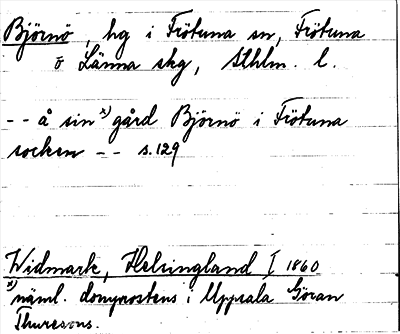 Björnö, hg i Frötuna sn, Frötuna
o Länna skg, Sthlm. l.
-- å sin x) gård Björnö i Frötuna
socken -- s. 129
Widmark, Helsingland I 1860
x) näml. domprostens i Uppsala Göran
Thuresons.